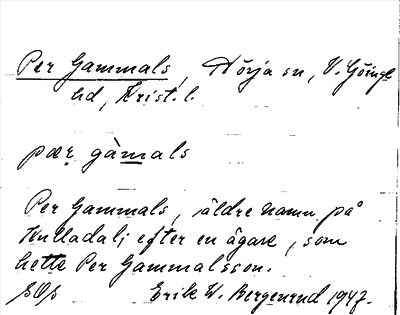 Per Gammals, Hörja sn, V. Göinge
hd, Krist. l.
pær gàmals
Per Gammals, äldre namn på
Kulladal; efter en ägare, som
hette Per Gammalsson.
Erik W. Bergenrud 1947.